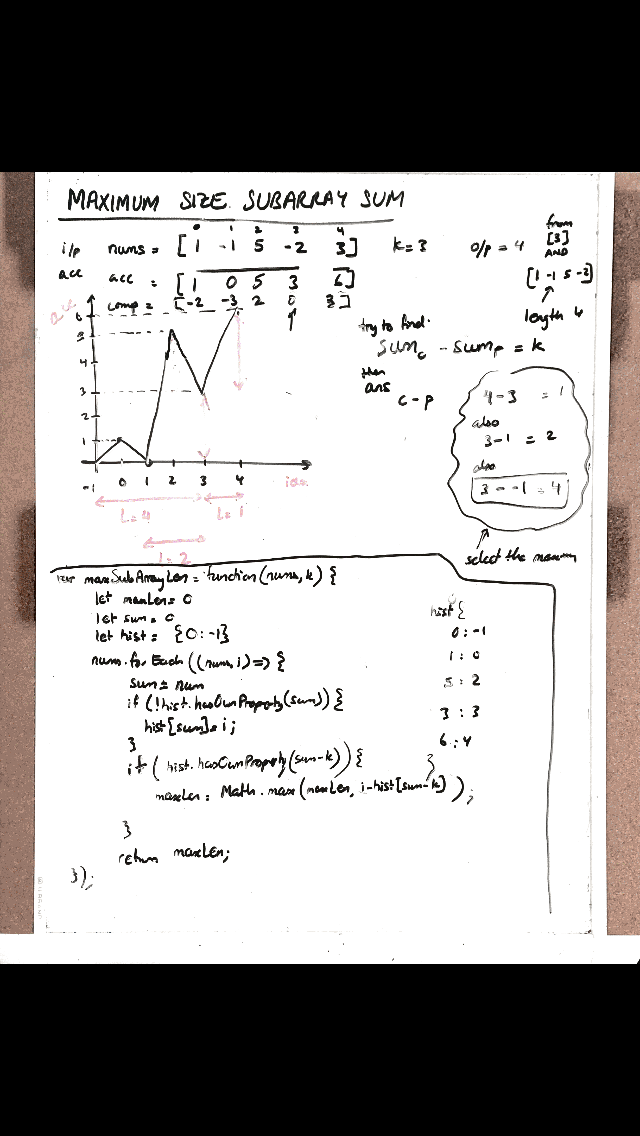 MAXIMUM SIZE SUBARRAY SUM
0 1 2 3 4
i/p nums = [ 1 -1 5 -2 3 ] k=3 o/p = 4
from
[3]
AND
[1 -1 5 -2]
length 4
acc acc = [ 1 0 5 3 6 ]
comp = [ -2 -3 2 0 3 ]
try to find:
sum_c - sum_p = k
then
ans c - p
4-3 = 1
also
3-1 = 2
also
3 - -1 = 4
select the maximum
acc
6
5
4
3
2
1
-1 0 1 2 3 4 idx
L=4 L=1
L=2
maxSubArrayLen = function(nums, k) {
let maxLen = 0
let sum = 0
let hist = {0:-1}
nums.forEach((num, i) => {
sum += num
if (!hist.hasOwnProperty(sum)) {
hist[sum] = i;
}
if ( hist.hasOwnProperty(sum-k)) {
maxLen = Math.max(maxLen, i-hist[sum-k]);
}
return maxLen;
});
hist {
0 : -1
1 : 0
5 : 2
3 : 3
6 : 4
}